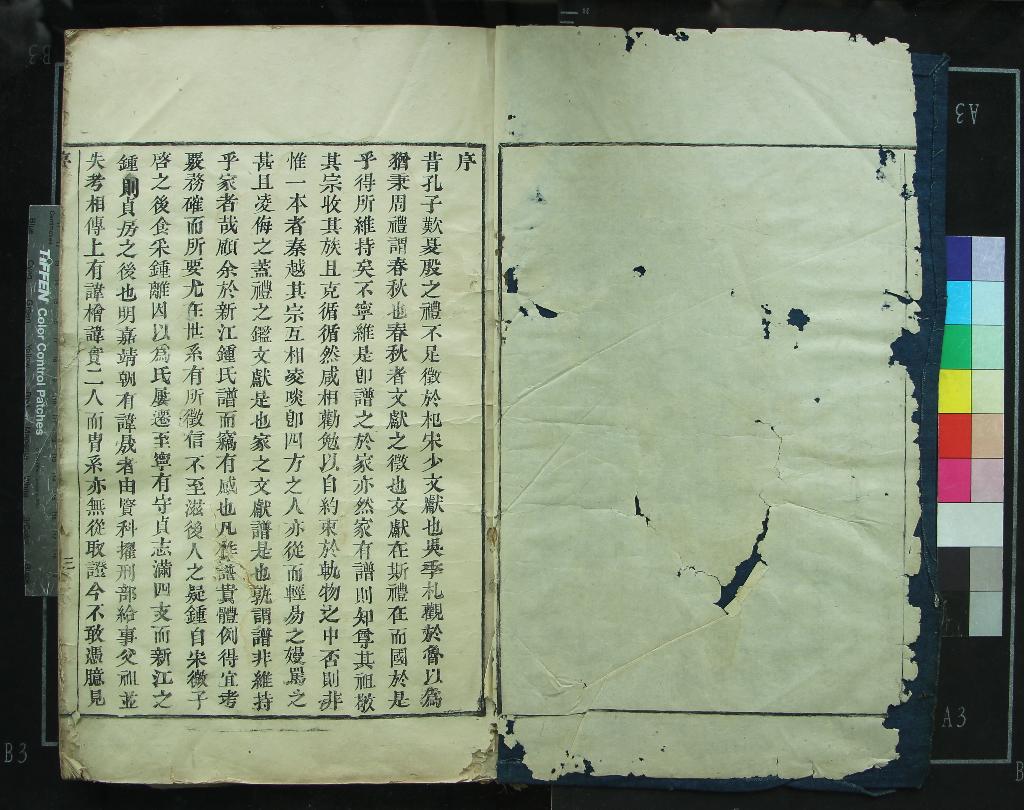 序
昔孔子歎夏殷之禮不足徵於杞宋少文獻也吳季札觀於魯以為
猶秉周禮謂春秋也春秋者文獻之徵也文獻在斯禮在而國於是
乎得所維持矣不寧維是卽譜之於家亦然家有譜則知尊其祖敬
其宗收其族且克循循然咸相勸勉以自約束於軌物之中否則非
惟一本者秦越其宗互相凌啖卽四方之人亦從而輕易之嫚罵之
甚且凌侮之蓋禮之鑑文獻是也家之文獻譜是也孰謂譜非維持
乎家者哉顧余於新江鍾氏譜而竊有感也凡作譜貴體例得宜考
覈務確而所要尤在世系有所徵信不至滋後人之疑鍾自宋微子
啓之後食采鍾離因以為氏屢遷至寧有守貞志滿四支而新江之
鍾則貞房之後也明嘉靖朝有諱晟者由賢科擢刑部給事父祖並
失考相傳上有諱檜諱實二人而胄系亦無從取證今不敢憑臆見
序
三
TIFFEN Color Control Patches
A3
A3
B3
B3